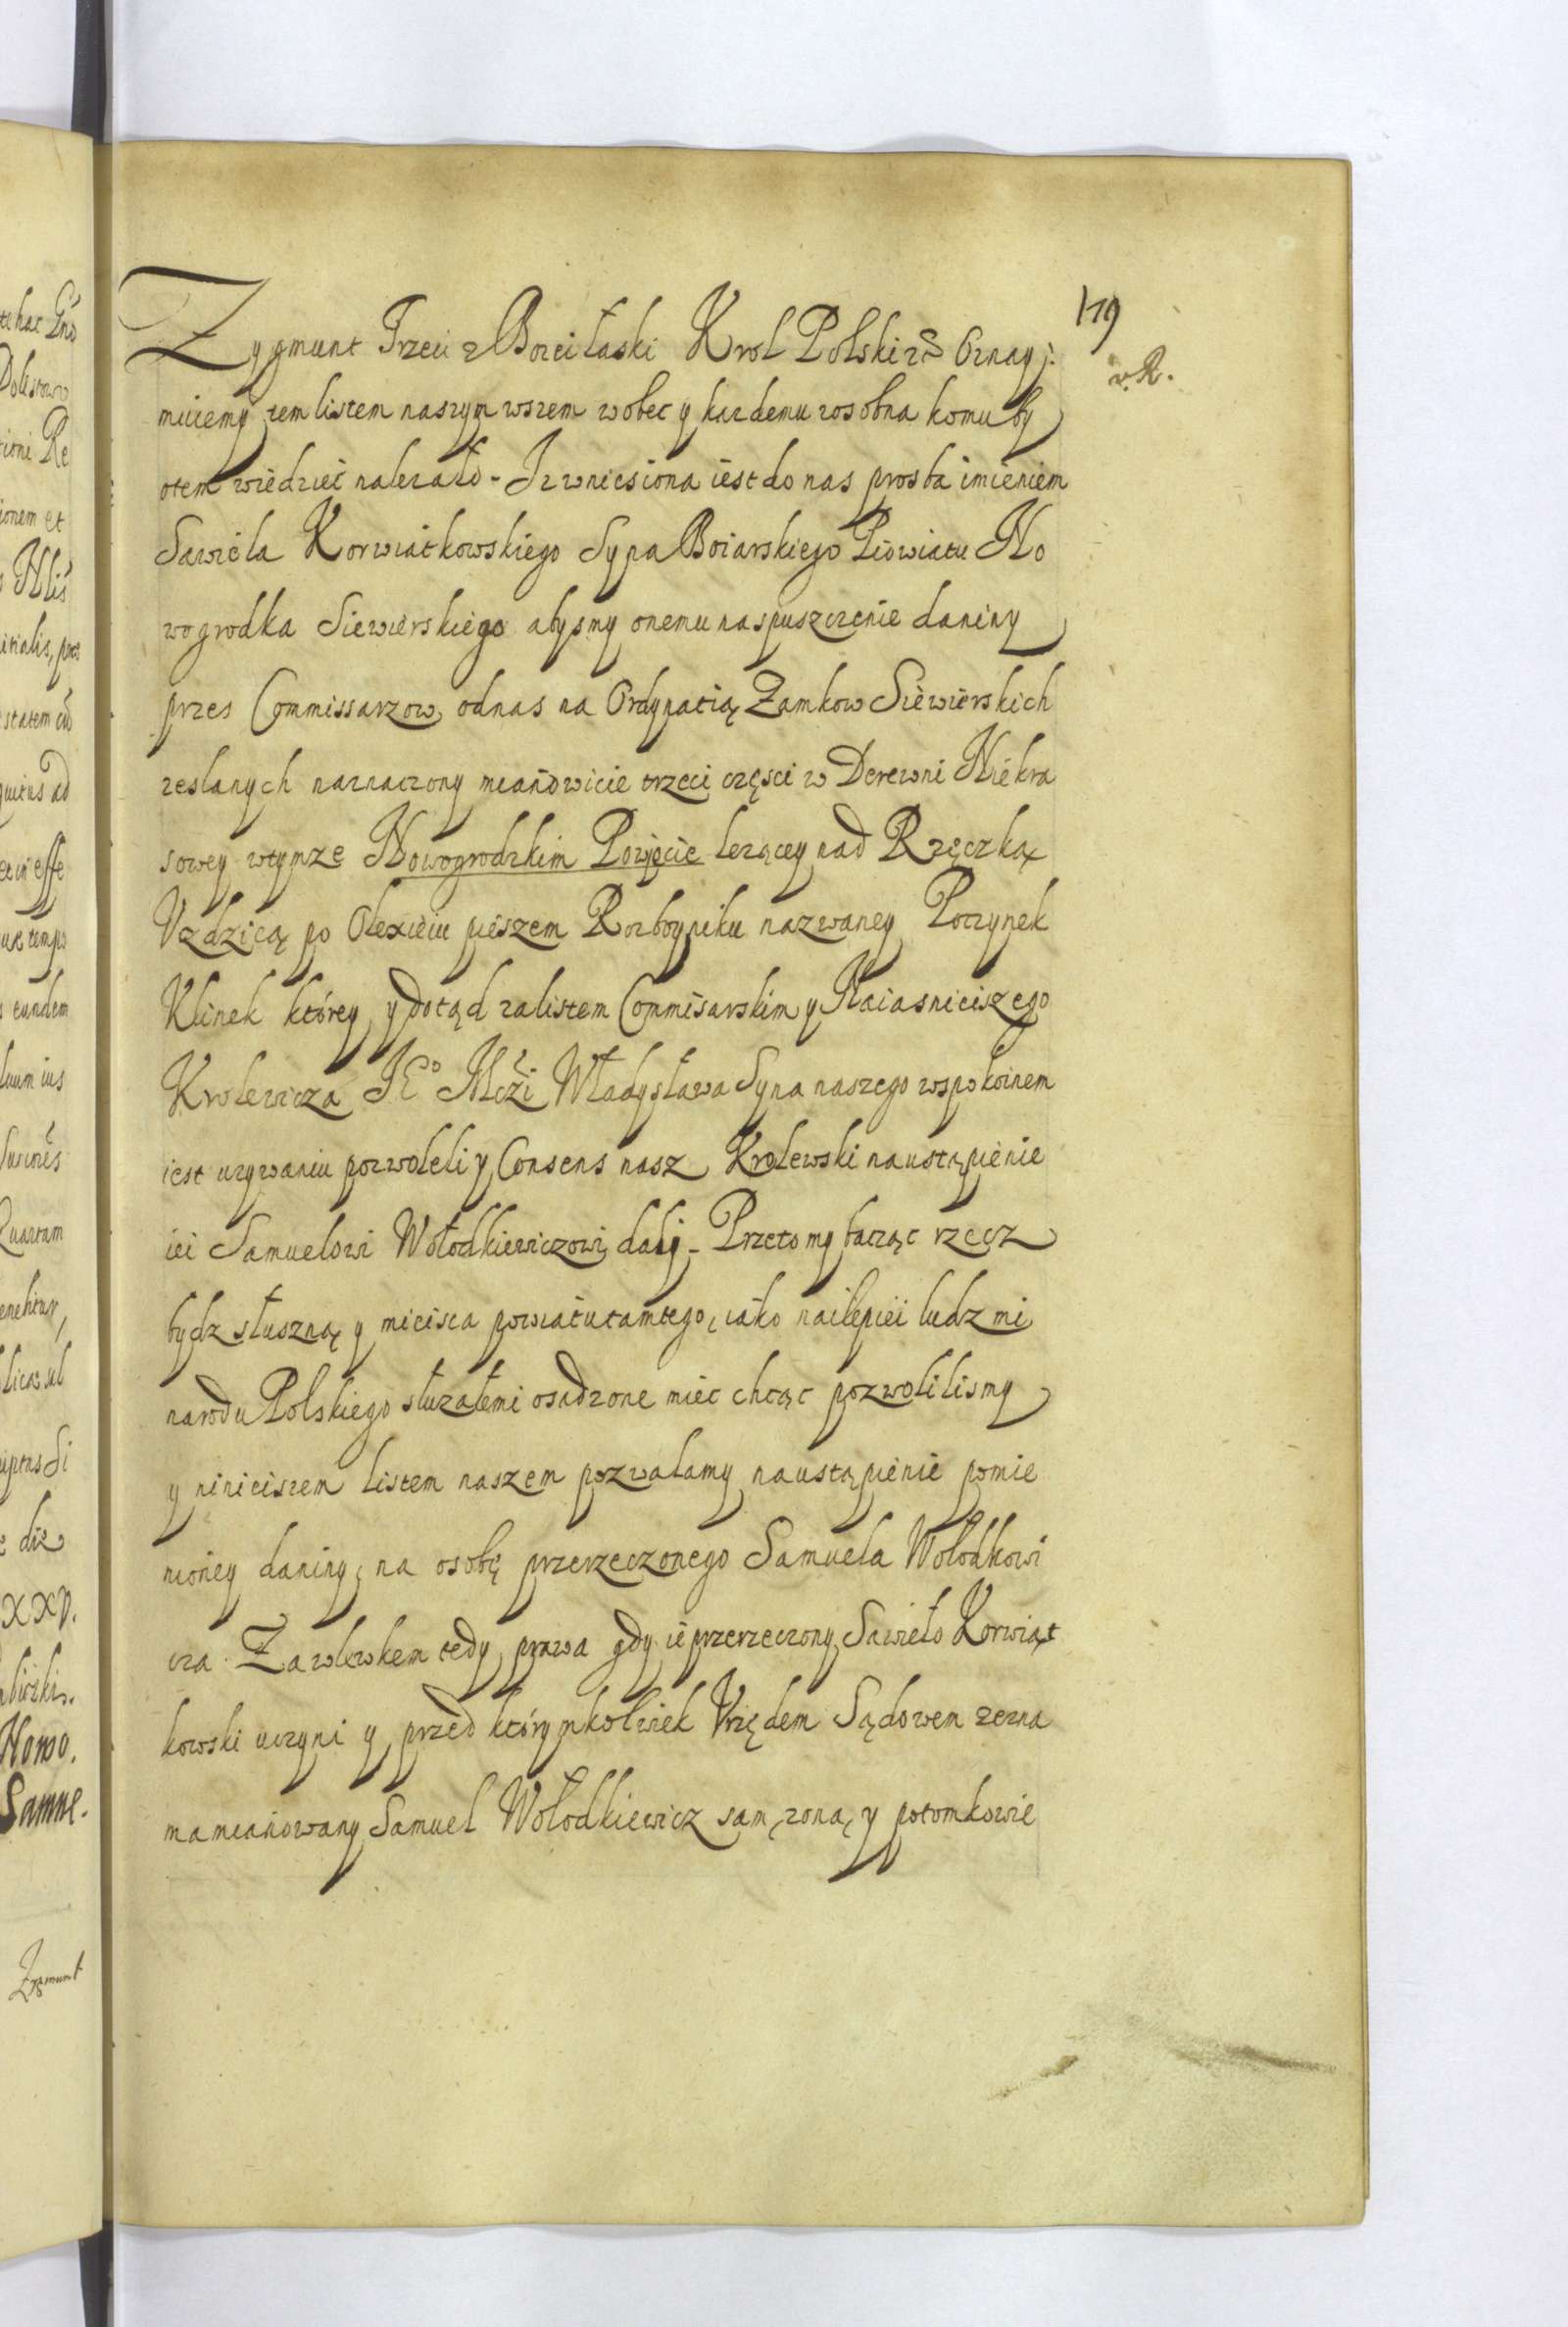 179
v. R.
Zygmunt Trzeci z Bozei łaski Krol Polski etc Oznay:
miiemy tem listem naszym wszem wobec y kazdemu zosobna komu by
otem wiedzieć nalezało - Iz wniesiona iest do nas prosba imieniem
Sawieła Korwiatkowskiego Syna Boiarskiego Powiatu No
wogrodka Siewierskiego abysmy onemu na spuszczenie daniny
przes Commissarzow od nas na Ordynatią Zamkow Siewierskich
zeslanych naznaczony mianowicie trzeci częsci w Derewni Niekra
sowey wtymze Nowogrodzkim Powjęcie lezącey nad Rzęczką
Vzdzicą po Olexieiu pieszem Rozboyniku nazwaney Poczynek
Klinek ktorey y dotąd za listem Commisarskim y Naiasnieiszego
Krolewicza JEo Mczi Władysława Syna naszego wspokoinem
iest uzywaniu pozwoleli y Consens nasz Krolewski na ustąpienie
iei Samuelowi Wołodkiewiczowi dały - Przeto my bacząc rzecz
bydz słuszną y mieisca powiatu tamtego, iako nailepiei ludzmi
narodu Polskiego służałemi osadzone miec chcąc pozwolilismy
y ninieiszem listem naszem pozwalamy na ustąpienie pomie
nioney daniny, na osobę przerzeczonego Samuela Wołodkowi
cza. Za wlewkem tedy prawa gdy ie przerzeczony Sawieło Korwiąt
kowski uczyni y przed ktorymkolwiek Vrzędem Sądowem zezna
ma mianowany Samuel Wołodkiewicz sam, zona, y potomkowie